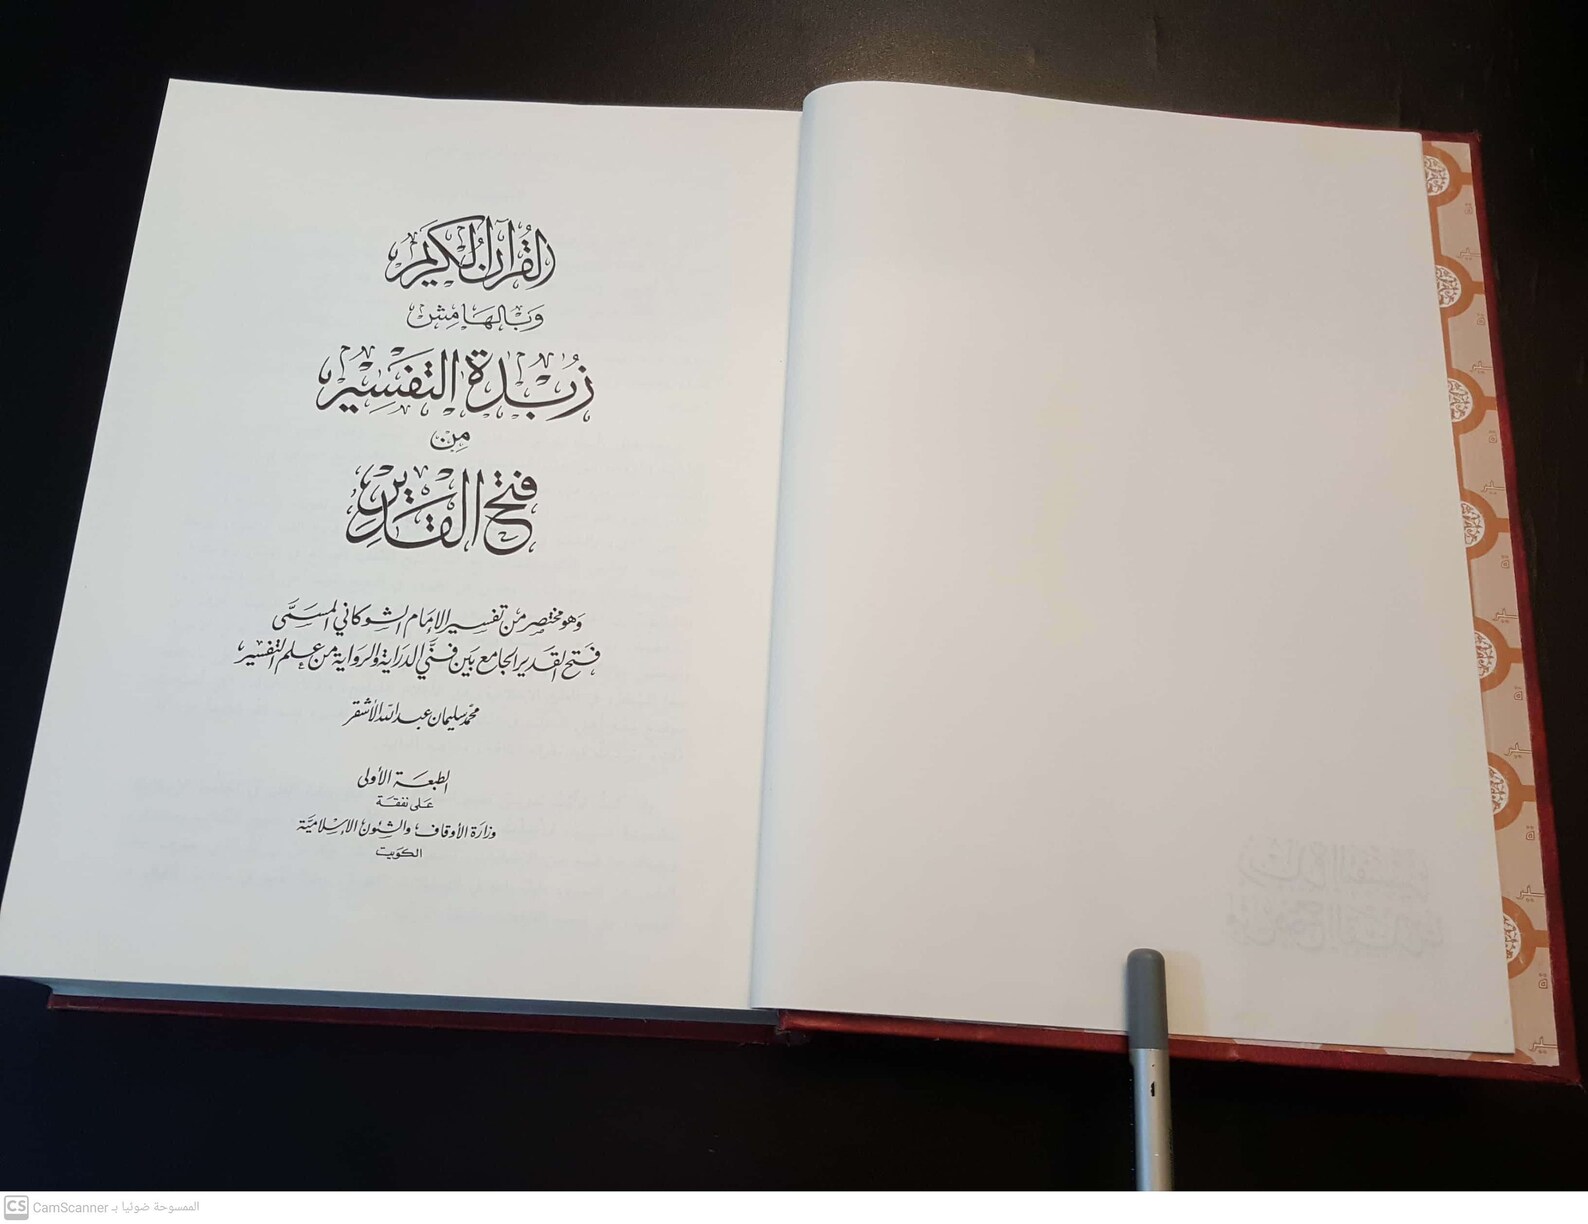 القرآن الكريم
وَبالهَامِش
زُبدَة التفسِير
مِن
فتح القَدير
وَهو مختصر من تفسير الإمَام الشوكاني المسَمَّى
فَتح القَدير الجَامع بَين فنَّي الدرَاية والرواية من عِلم التفسير
محمّد سليمان عبد الله الأشقر
الطبعَة الأولى
عَلى نفقة
وزارة الأوقاف والشئون الإسلاميَّة
الكويت
CS CamScanner الممسوحة ضوئيا بـ